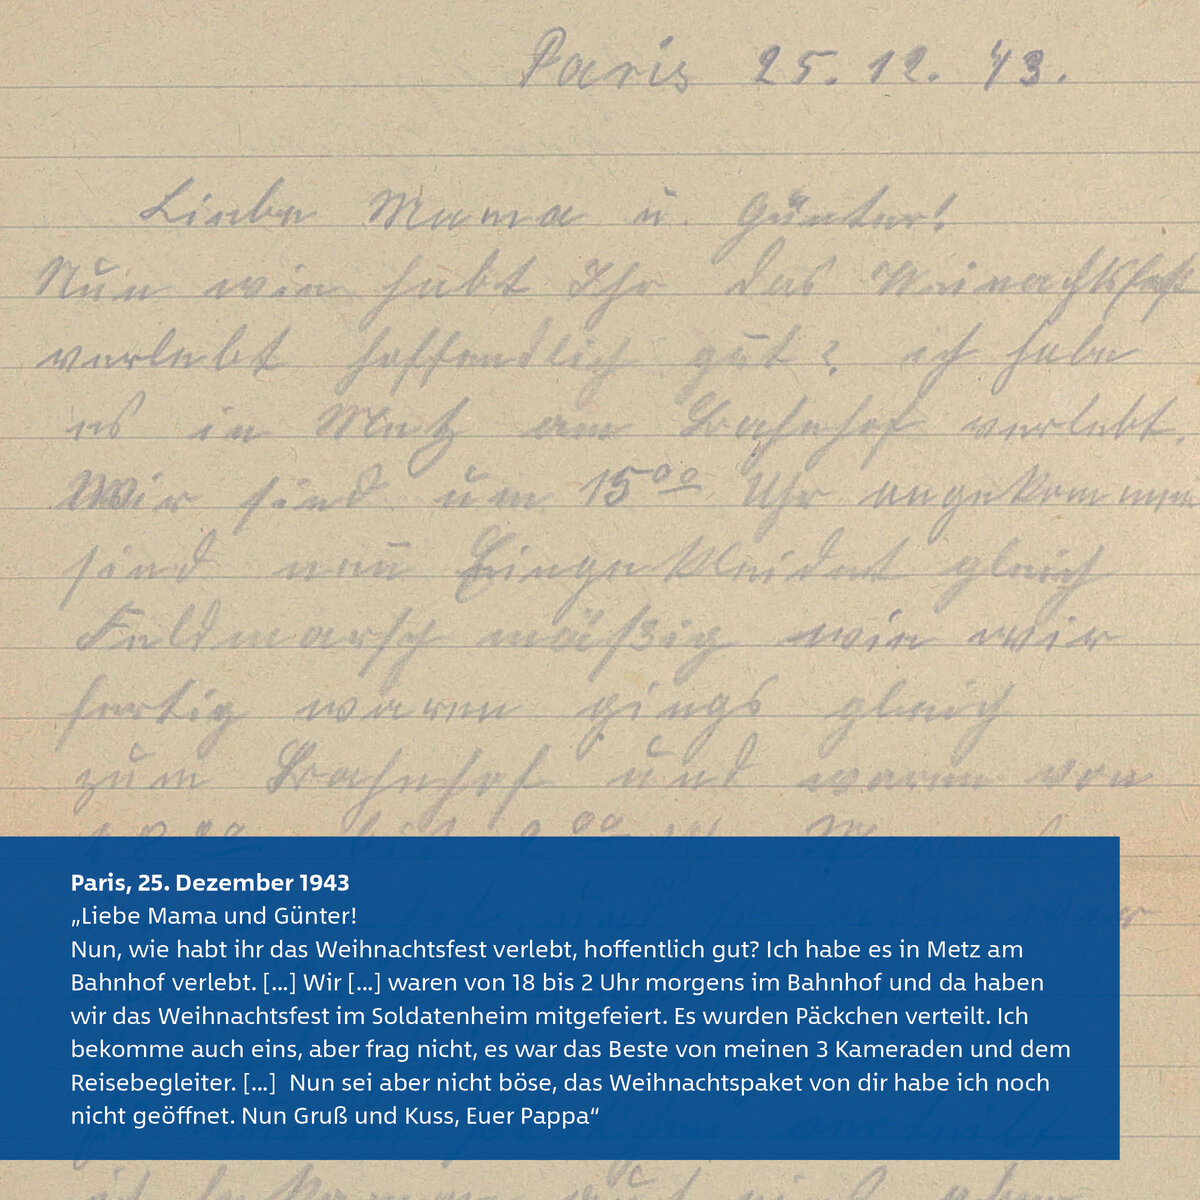 Paris 25. 12. 43.
Liebe Mama u. Günter!
Nun wie habt Ihr das Weinachtsfest
verlebt hoffendlich gut? ich habe
es in Metz am Bahnhof verlebt.
Wir sind um 15⁰⁰ Uhr angekommen
sind nun Eingekleidet gleich
Feldmarsch mäßig wie wir
fertig waren gings gleich
zum Bahnhof und waren von
Paris, 25. Dezember 1943
„Liebe Mama und Günter!
Nun, wie habt ihr das Weihnachtsfest verlebt, hoffentlich gut? Ich habe es in Metz am
Bahnhof verlebt. [...] Wir [...] waren von 18 bis 2 Uhr morgens im Bahnhof und da haben
wir das Weihnachtsfest im Soldatenheim mitgefeiert. Es wurden Päckchen verteilt. Ich
bekomme auch eins, aber frag nicht, es war das Beste von meinen 3 Kameraden und dem
Reisebegleiter. [...] Nun sei aber nicht böse, das Weihnachtspaket von dir habe ich noch
nicht geöffnet. Nun Gruß und Kuss, Euer Pappa“